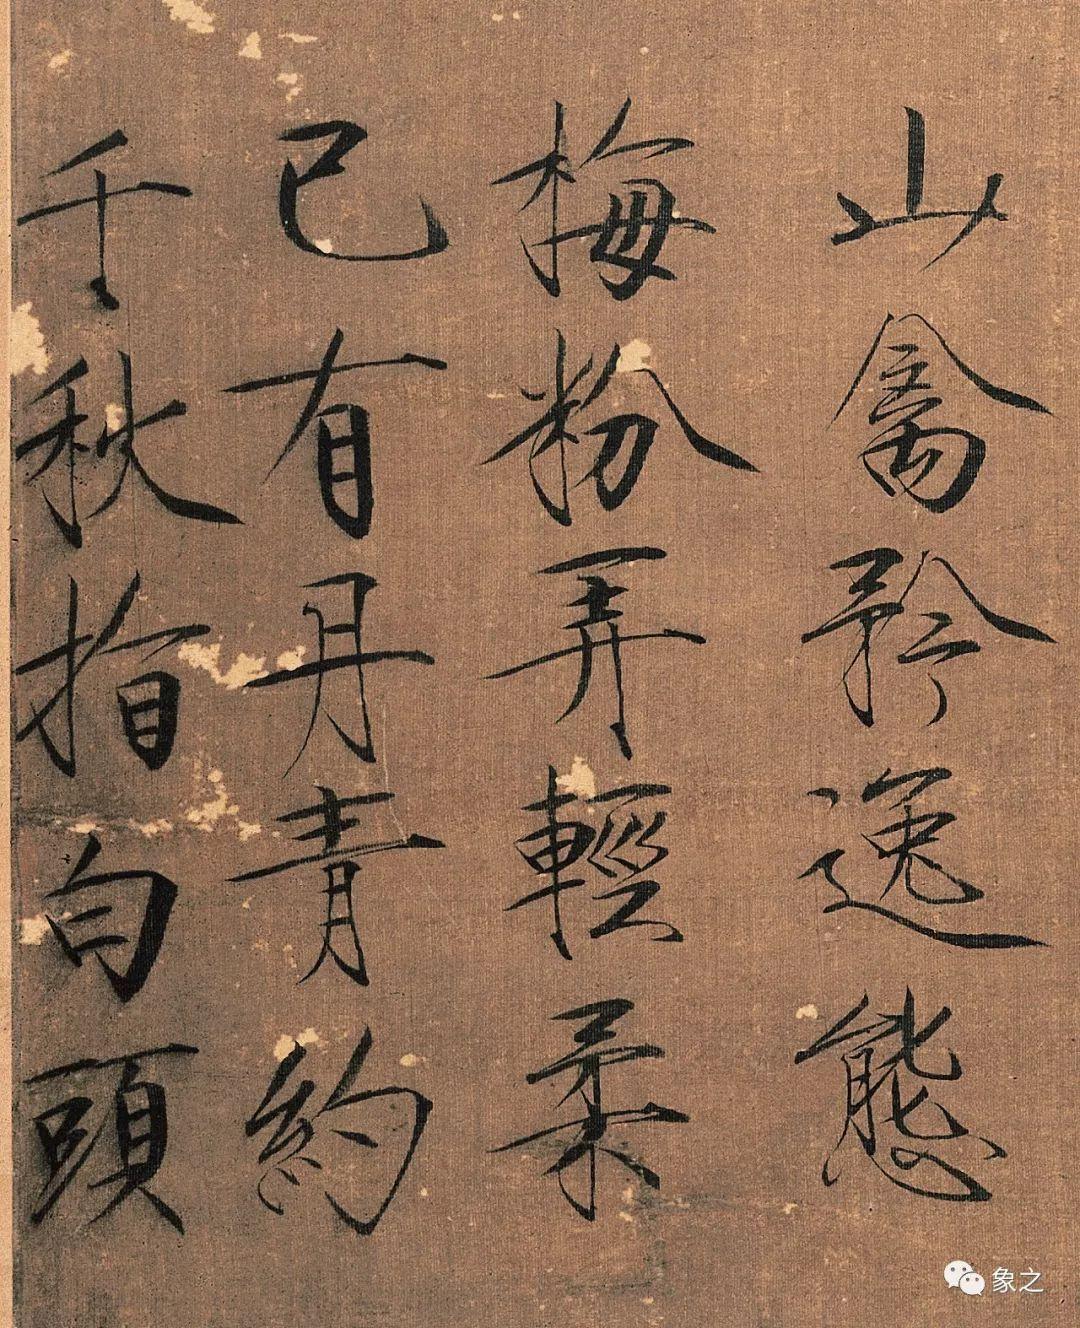 山禽矜逸態
梅粉弄輕柔
已有丹青約
千秋指白頭
象之